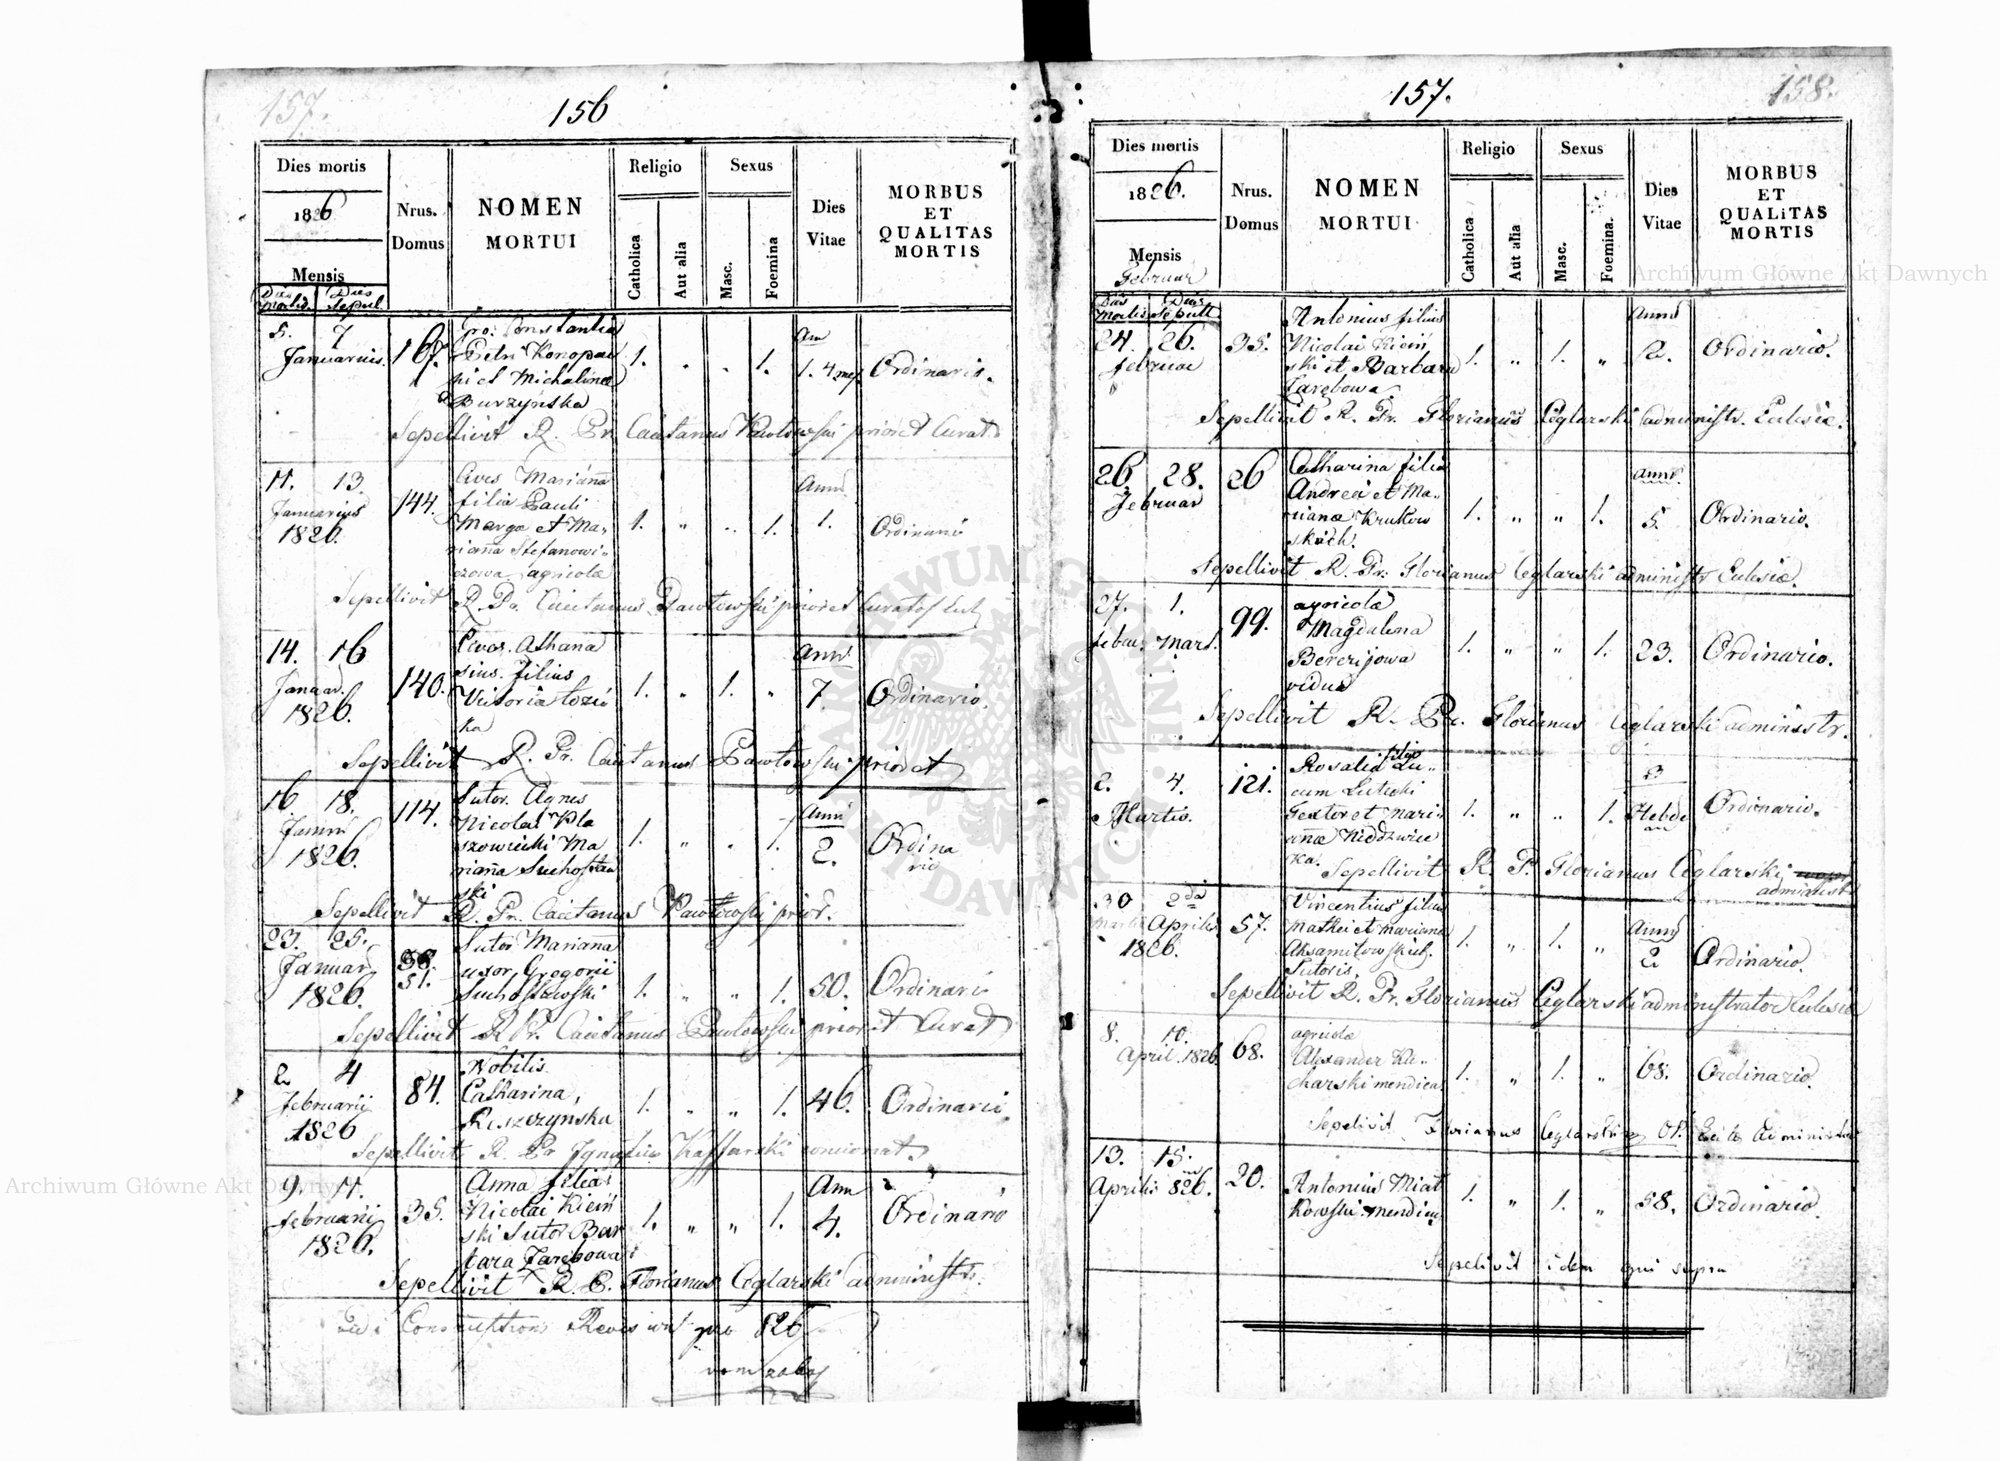 157.
156
Dies mortis
1826
Mensis
Dies Mortis
Dies Sepul
Nrus.
Domus
NOMEN
MORTUI
Religio
Catholica
Aut alia
Sexus
Masc.
Foemina
Dies
Vitae
MORBUS
ET
QUALITAS
MORTIS
5. 7
Januarius.
167.
Constantia
Petri Konopac
ki et Michalina
Burzyńska
1. „ „ 1.
An
1. 4 mes
Ordinaris.
Sepellivit R. Pr. Caietanus Pawłowski prior et Curat
11. 13.
Januarius
1826.
144.
Cives Marianna
filia Pauli
Marga et Ma-
rianna Stefanowi-
czowa agricolae
1. „ „ 1.
Anni
1.
Ordinario
Sepellivit R. Pr. Caietanus Pawłowski prior et Curatus
14. 16
Januar.
1826.
140.
Athana
sius filius
Victoria
ka
1. „ 1. „
Anni
7.
Ordinario.
Sepellivit R. Pr. Caietanus Pawłowski prior et
16 18.
1826.
114.
Sutor. Agnes
Nicolai Kla
szowiecki Ma
rianna
ski
1. „ „ 1.
Anni
2.
Ordina
rio
Sepellivit R. Pr. Caietanus Pawłowski prior.
23. 25.
Januar
1826.
51.
Sutor Marianna
uxor Gregorii
1. „ „ 1.
50.
Ordinari
Sepellivit R. Pr. Caietanus Pawłowski prior et Curat
2 4
februarii
1826
84.
Nobilis
Catharina,
Reszczynska
1. „ „ 1.
46.
Ordinario.
Sepellivit R. Pr. Ignatius Kaffarski concionat.
9. 11.
februarii
1826.
35.
Anna filia
Nicolai Kień
ski Sutor Bar
bara Zarębowa
1. „ „ 1.
Ann
4.
Ordinario
Sepellivit R. P. Florianus Ceglarski administr.
pro 826
157.
158.
Dies mortis
1826.
Mensis
Februar
Dies Mortis
Dies Sepult
Nrus.
Domus
NOMEN
MORTUI
Religio
Catholica
Aut alia
Sexus
Masc.
Foemina.
Dies
Vitae
MORBUS
ET
QUALITAS
MORTIS
24. 26.
februae
35.
Antonius filius
Nicolai Kień
ski et Barbara
Zarębowa
1. „ 1. „
Anni
2.
Ordinario.
Sepellivit R. Pr. Florianus Ceglarski administr. Eclesie.
26. 28.
Februar
26
Catharina filia
Andrea et Ma-
rianae Krukow
skich.
1. „ „ 1.
Anni.
5.
Ordinario.
Sepellivit R. Pr. Florianus Ceglarski administr Eclesie.
27. 1.
febru. Mart.
99.
agricolae
Magdalena
vidua
1. „ „ 1.
23.
Ordinario.
Sepellivit R. Pr. Florianus Ceglarski administr.
2. 4.
Martis.
121.
Rosalia filia Lu-
Textor et Mari
anae Niedzwiec
ka.
1. „ „ 1.
3
Hebdo
Ordinario.
Sepellivit R. P. Florianus Ceglarski
administr
30 2da
Martii Aprilis
1826.
57.
Vincentius filius
Mathei et Mariana
Aksamitowskich.
Sutoris.
1. „ 1. „
Anni
2
Ordinario.
Sepellivit R. Pr. Florianus Ceglarski administrator Eclesie
8. 10.
April. 1826
68.
agricolae
Alexander Ku-
charski mendicus
1. „ 1. „
68.
Ordinario.
Sepelivit Florianus Ceglarski OP.
13. 15.
Aprilis 826.
20.
Antonius Miał
kowski mendicus
1. „ 1. „
58.
Ordinario.
Sepelivit idem qui supra
Archiwum Główne Akt Dawnych
Archiwum Główne Akt Dawnych
ARCHIWUM GŁÓWNE AKT DAWNYCH